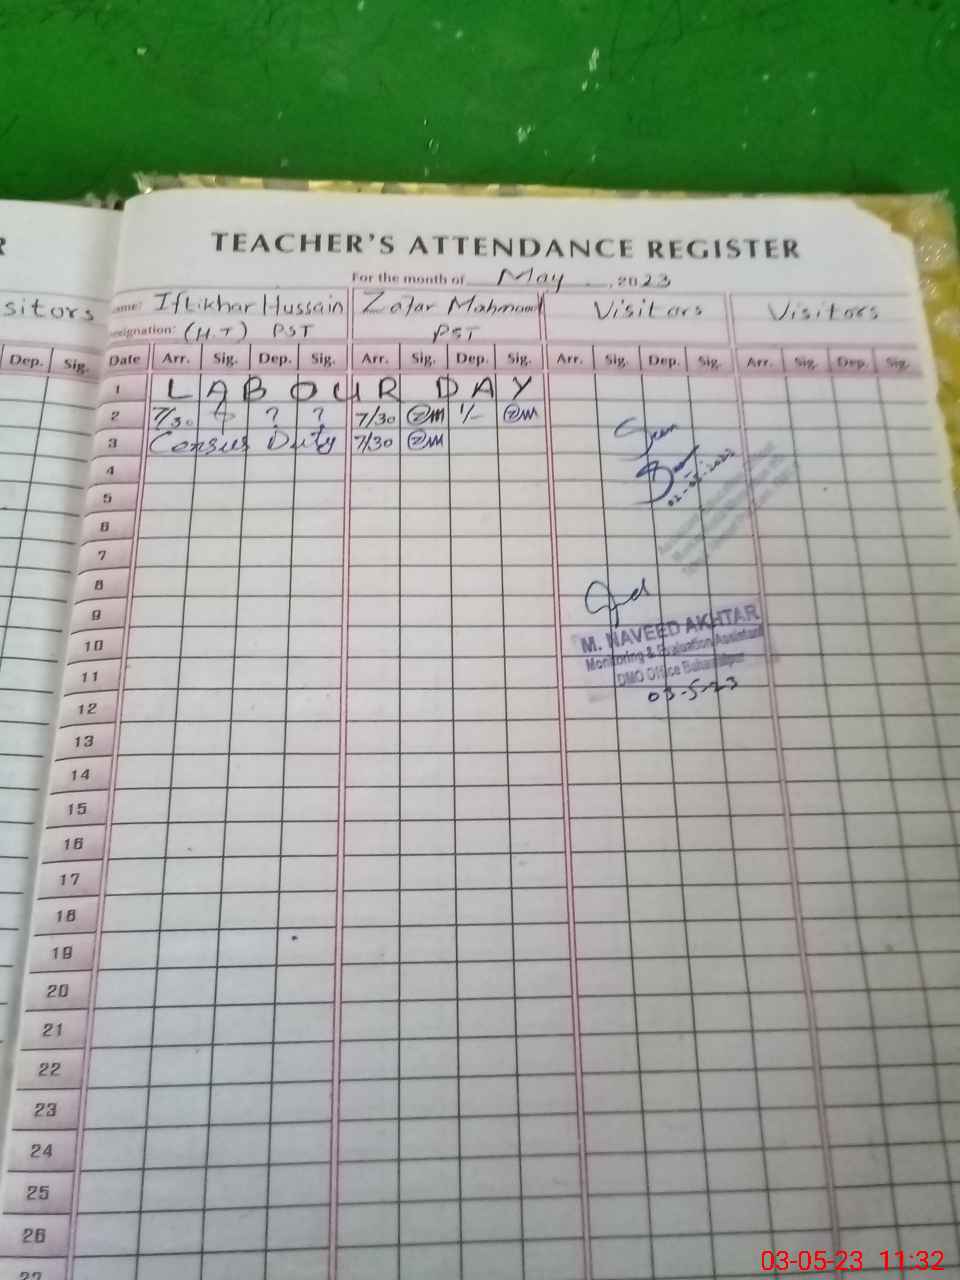 R
TEACHER'S ATTENDANCE REGISTER
For the month of May, 2023
sitors
Name: Iftikhar Hussain Zafar Mahmood Visitors Visitors
Designation: (H.T) PST PST
Dep. Sig. Date Arr. Sig. Dep. Sig. Arr. Sig. Dep. Sig. Arr. Sig. Dep. Sig. Arr. Sig. Dep. Sig.
1 LABOUR DAY
2 7/30 ? ? 7/30 ZM 1/- ZM
3 Census Duty 7/30 ZM
4
5
02-05-2023
6
7
8
9
10
M. NAVEED AKHTAR
Monitoring & Evaluation Assistant
11
DMO Office Bahawalpur
03-5-23
12
13
14
15
16
17
18
19
20
21
22
23
24
25
26
27
03-05-23 11:32